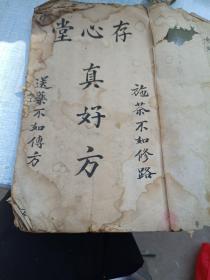 存心堂
施茶不如修路
真好方
送藥不如傳方